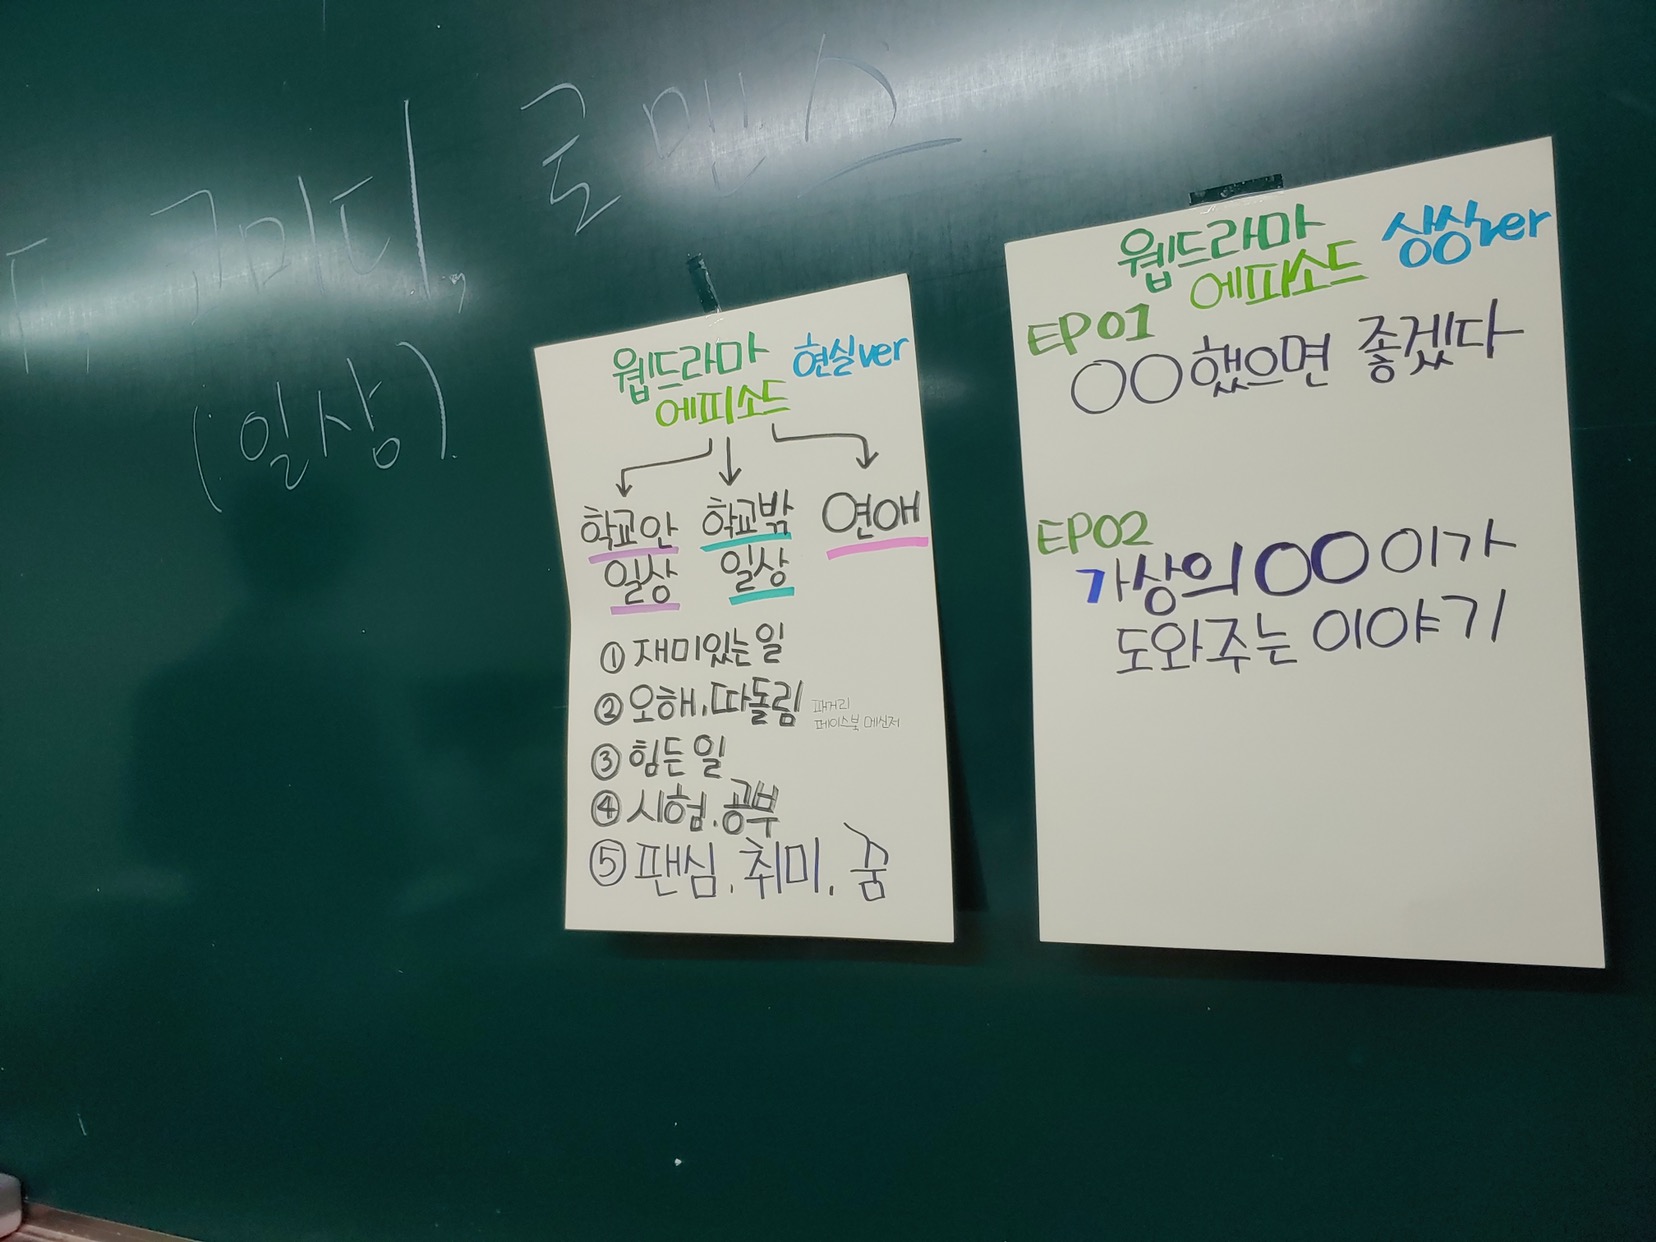 코미디, 로맨스
(일상)
웹드라마 현실ver
에피소드
학교안 학교밖 연애
일상 일상
① 재미있는 일
② 오해, 따돌림 패거리
페이스북 메신저
③ 힘든 일
④ 시험. 공부
⑤ 팬심. 취미. 꿈
웹드라마 상상ver
에피소드
EP01
○○했으면 좋겠다
EP02
가상의 ○○이가
도와주는 이야기